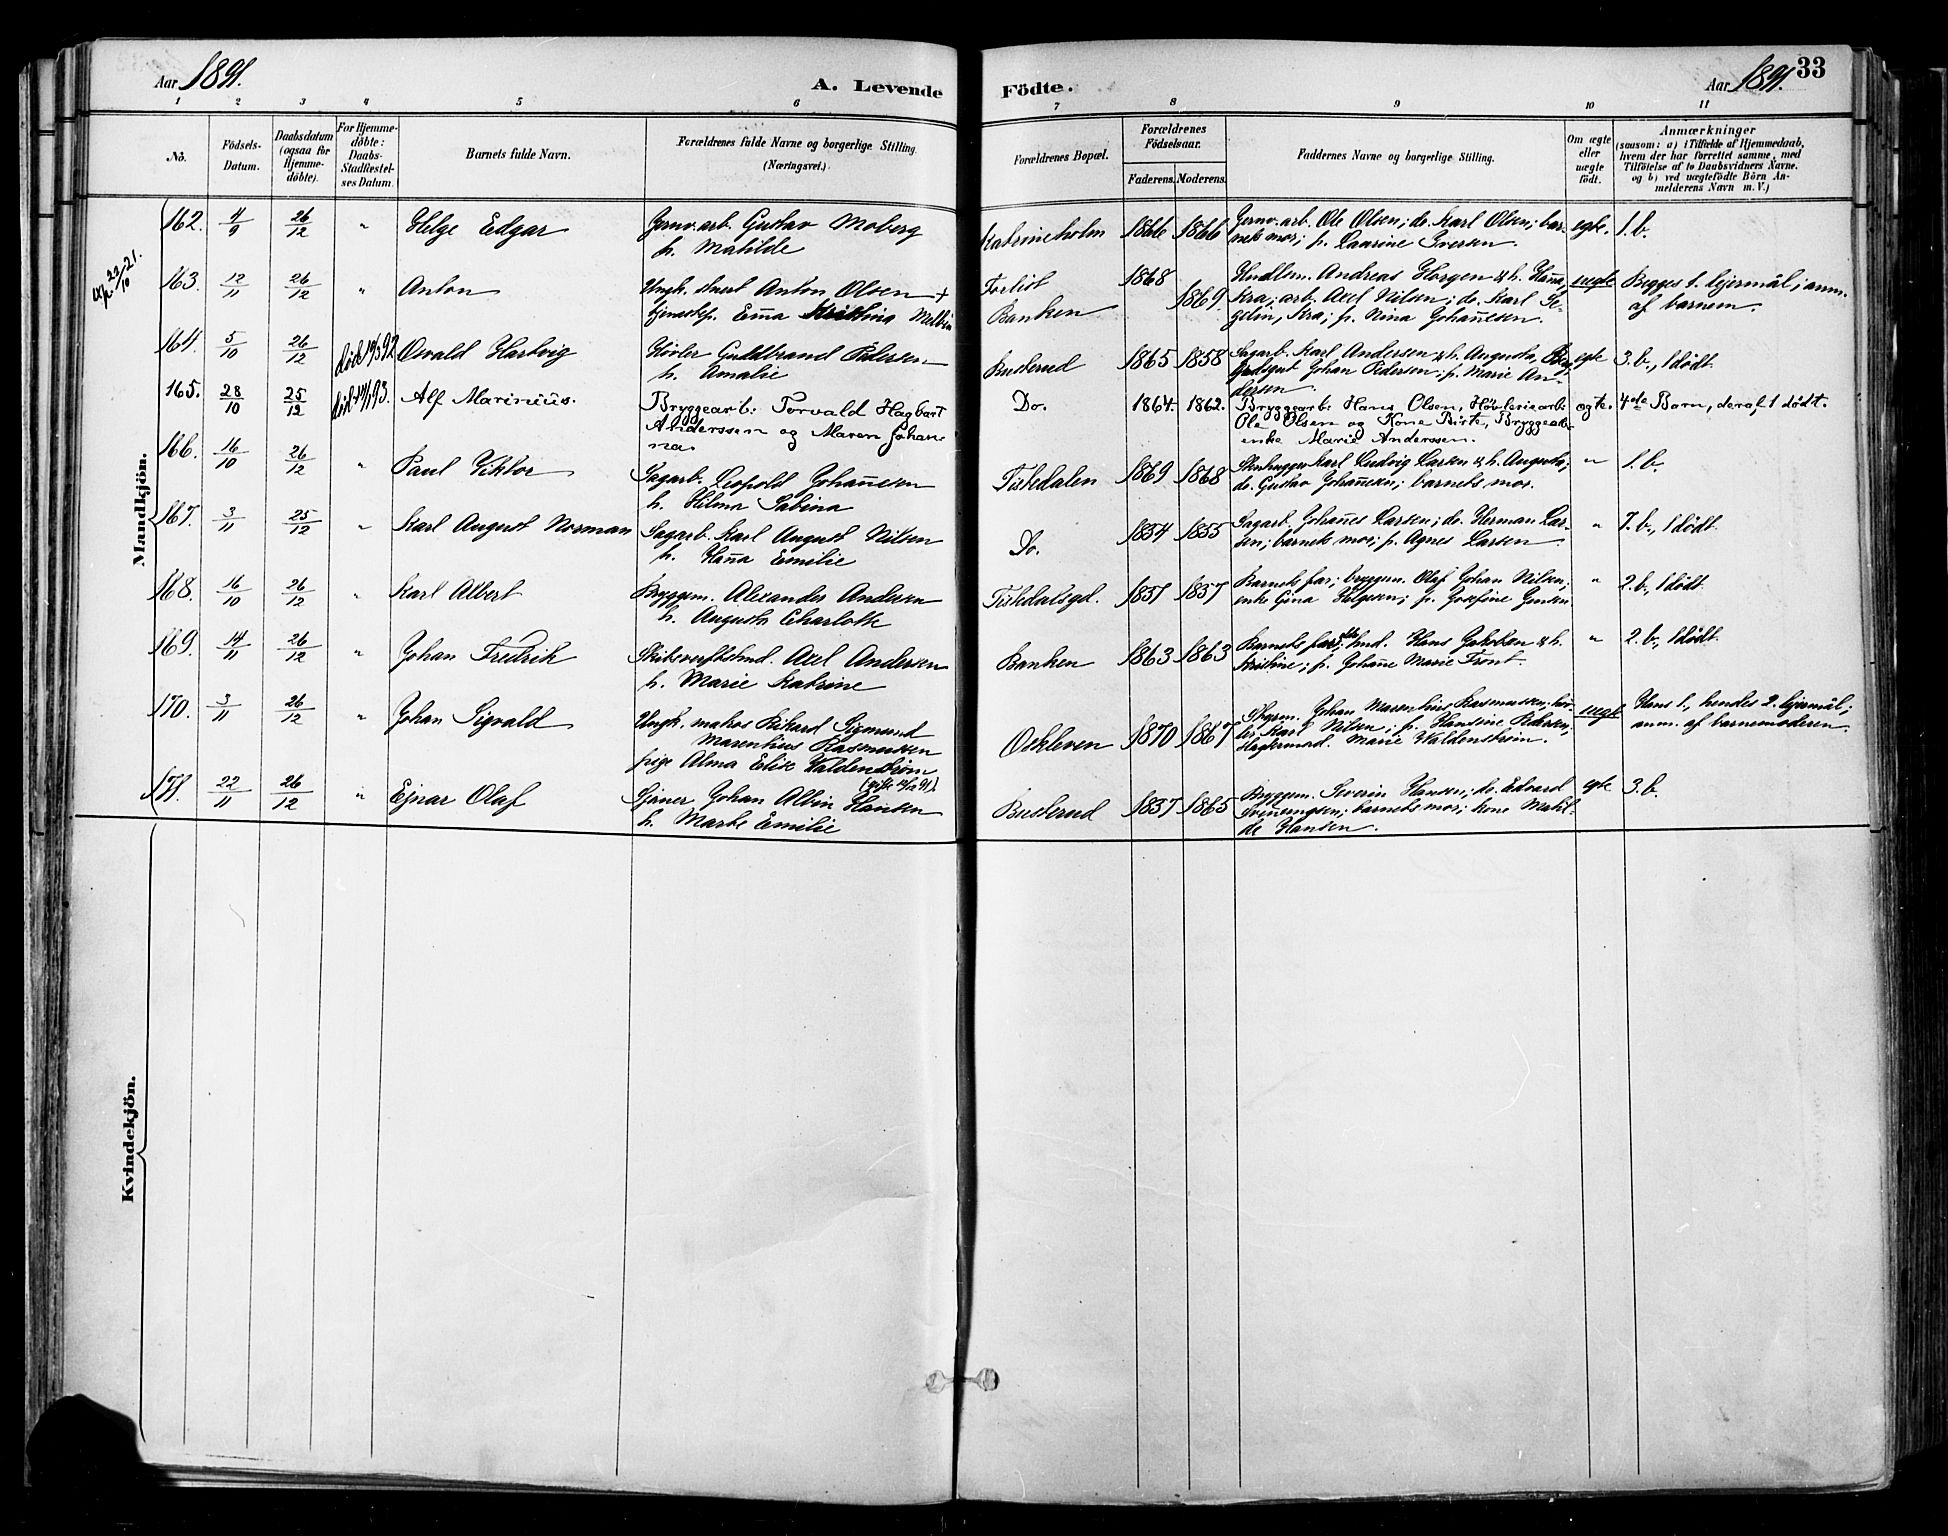 Aar 1891.
A. Levende Födte.
Aar 1891. 33
1 2 3 4 5 6 7 8 9 10 11
Nô.
Födsels-Datum.
Daabsdatum (ogsaa for Hjemme-döbte).
For Hjemme-döbte: Daabs-Stadfæstel-ses Datum.
Barnets fulde Navn.
Forældrenes fulde Navne og borgerlige Stilling. (Næringsvei.)
Forældrenes Bopæl.
Forældrenes Födselsaar.
Faderens. Moderens.
Faddernes Navne og borgerlige Stilling.
Om ægte eller uægte födt.
Anmærkninger
(saasom: a) i Tilfælde af Hjemmedaab, hvem der har forrettet samme, med Tilföielse af to Daabsvidners Navne. og b) ved uægtefödte Börn An-melderens Navn m. V.)
Mandkjön.
162. 4/9 26/12 " Helge Edgar
Jernv.arb. Gustav Moberg
h. Matilde
Katrineholm 1866 1866
Jernv.arb. Ole Olsen; do. Karl Olsen; bar-
nets mor; p. Laurine Iversen.
egte. 1. b.
22/10 21.
163. 12/11 26/12 " Anton
Ungk. Anton Olsen +
tjenestep. Emma Kristina Melbin
Banken 1868 1869
Handlem. Andreas Horgen & h. Hanna,
Kra; arb. Axel Nilsen; do. Karl Se-
gelin, Kra; p. Nina Johannesen.
uegte Begges 1. lejermål; anm.
af barnem.
164. 5/10 26/12 Osvald Hartvig
Høvler Guldbrand Pedersen
h. Amalie
Busterud 1865 1858
Sagarb. Karl Andersen & h. Augusta,
Johan Pedersen; p. Marie An-
dersen
egte 3. b., 1 dødt
165. 28/10 25/12 Alf Marinius.
Bryggearb. Torvald Hagbart
Anderssen og Maren Johan-
na.
Do. 1864. 1862.
Bryggearb. Hans Olsen, Høvleriearb.
Ole Olsen og Kone Birte, Bryggearb.
enke Marie Anderssen.
egte. 4de Barn, deraf 1 dødt.
166. 16/10 26/12 " Paul Viktor
Sagarb. Leopold Johannesen
h. Hilma Sabina
Tistedalen 1869 1868
Stenhugger Karl Ludvig Larsen & h. Augusta;
do. Gustav Johannesen; barnets mor.
" 1. b.
167. 3/11 25/12 " Karl August Norman
Sagarb. Karl August Nilsen
h. Hanna Emilie
Do. 1854 1855
Sagarb. Johannes Larsen; do. Herman Lar-
sen; barnets mor; p. Agnes Larsen
" 7. b., 1 dødt
168. 16/10 26/12 " Karl Albert
Bryggem. Alexander Andersen
h. Augusta Charlotte
Tistedalsgd. 1857 1857
Barnets far; bryggem. Olaf Johan Nilsen;
enke Gina Helgesen; p. Josefine Jensen
" 2. b., 1 dødt
169. 14/11 26/12 " Johan Fredrik
Skibsverftstmd. Axel Andersen
h. Marie Katrine
Banken 1863 1863
Barnets far; tmd. Hans Jakobsen & h.
Kristine; p. Johanne Marie Front
" 2. b., 1 dødt
170. 3/11 26/12 " Johan Sigvald
Ungk. matros Rikard Sigmund
Marenhius Rasmussen
pige Alma Elise Valdenstrøm
Oskleven 1870 1867
Johan Marenhius Rasmussen; høv-
ler Karl Nilsen; p. Hansine Pedersen;
Marie Valdenstrøm.
uegte Hans 1., hendes 2. lejermål;
anm. af barnemoderen.
171. 22/11 26/12 " Ejnar Olaf
Sjaner Johan Albin Hansen
h. Marte Emilie
Busterud 1837 1865
Bryggem. Severin Hansen; do. Edvard
Sveinungsen; barnets mor; kone Matil-
de Hansen.
egte 3. b.
Kvindekjön.